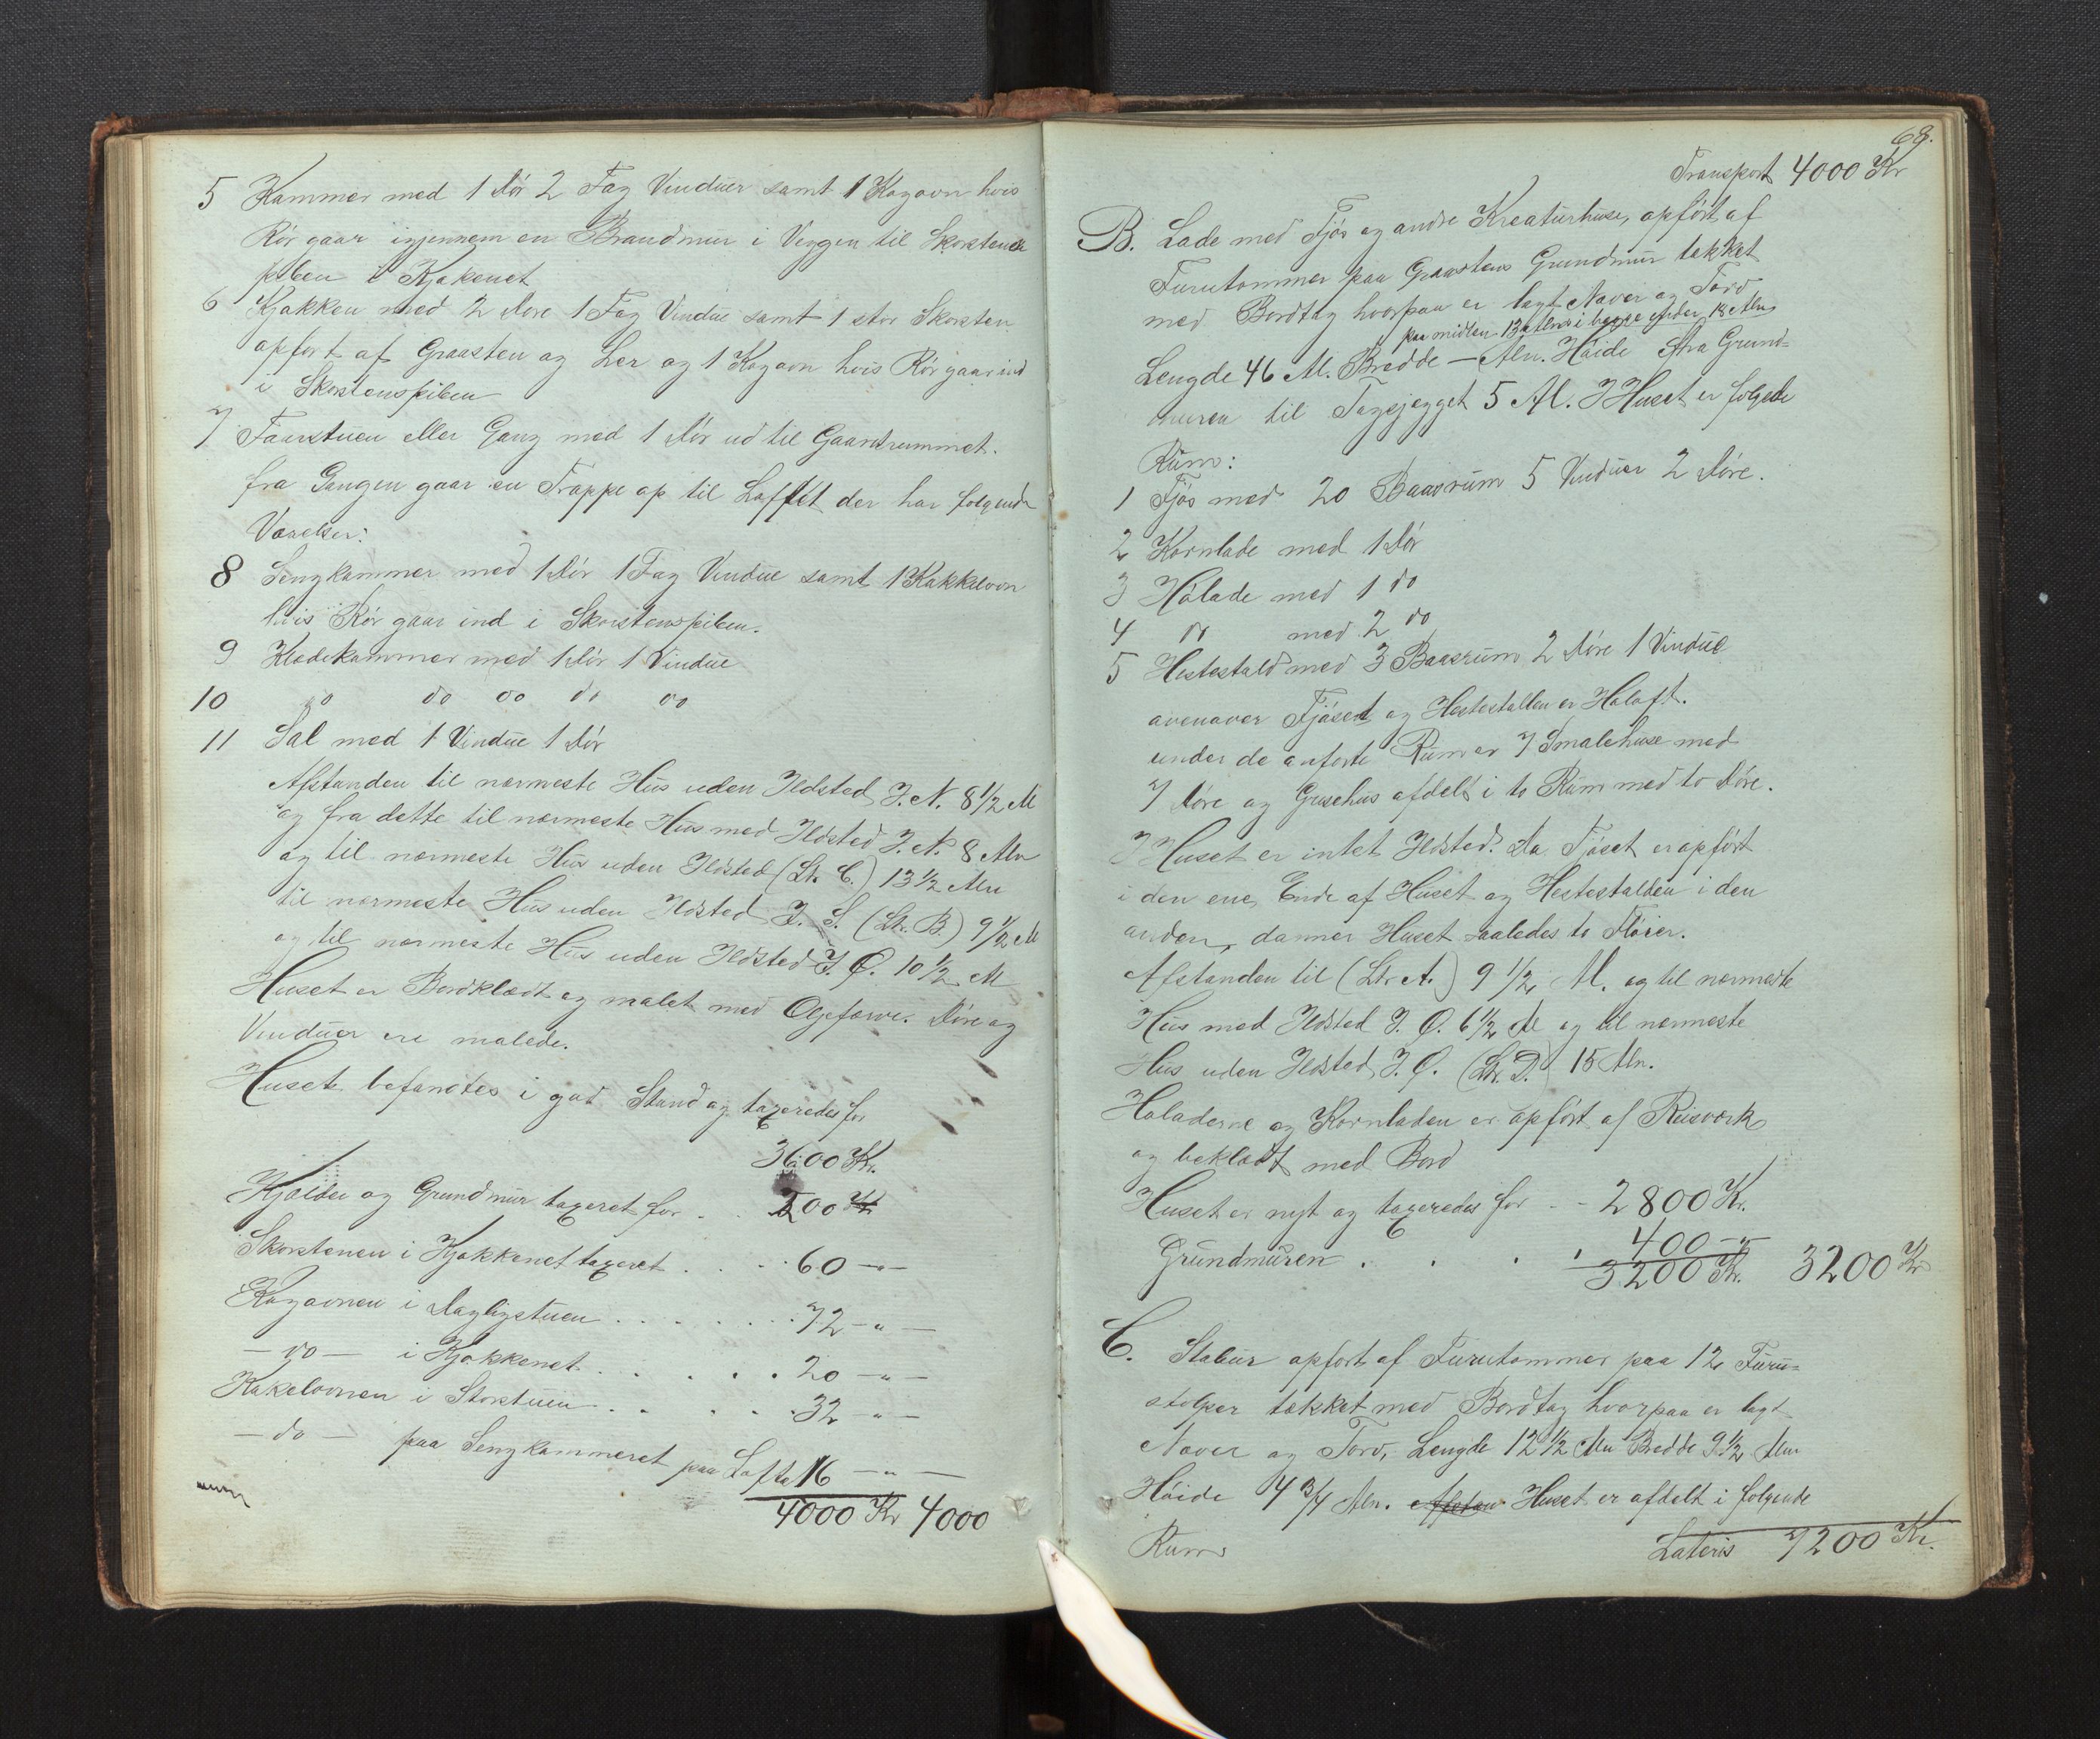 5 Kammer med 1 Dør 2 Fag Vinduer samt 1 Kogovn hvis
Rør gaar igjennem en Brandmur i Veggen til Skorstens
piben i Kjøkenet
6 Kjøkken med 2 Døre 1 Fag Vindue samt 1 stor Skorsten
opført af Graasten og Ler og 1 Kogovn hvis Rør gaar ind
i Skorstenspiben
7 Faarstuen eller Gang med 1 Dør ud til Gaardsrummet.
fra Gangen gaar en Trappe op til Loftet der har følgende
Værelser:
8 Sengkammer med 1 Dør 1 Fag Vindue samt 1 Kakkelovn
hvis Rør gaar ind i Skorstenspiben.
9 Klædekammer med 1 Dør 1 Vindue
10 do do do do do
11 Sal med 1 Vindue 1 Dør
Afstanden til nærmeste Hus uden Ildsted I. N. 8 1/2 Al
og fra dette til nærmeste Hus med Ildsted I. N. 8 Aln
og til nærmeste Hus uden Ildsted (Ltr. C.) 13 1/2 Aln
til nærmeste Hus uden Ildsted I. S. (Ltr. B.) 9 1/2 Al
og til nærmeste Hus uden Ildsted I. Ø. 10 1/2 Al
Huset er Bordklædt og malet med Oljefarve. Døre og
Vinduer ere malede.
Huset befandtes i god Stand og taxeredes for
3600 Kr.
Kjælder og Grundmur taxeret for . . 200 Kr
Skorstenen i Kjøkkenet taxeret . . . . 60 -"-
Kogovnen i Dagligstuen . . . . . . . . 72 -"-
- do - i Kjøkkenet . . . . . 20 -"-
Kakelovnen i Storstuen . . . . . 32 " -
- do - paa Sengkammeret paa Lofte 16 -"-
4000 Kr 4000
69.
Transport 4000 Kr
B. Lade med Fjøs og andre Kreaturhuse, opført af
Furutømmer paa Graastens Grundmur tækket
med Bordtag hvorpaa er lagt Næver og Torv
paa midten 13 Alen i begge ender 12 Aln
Lengde 46 Al. Bredde — Aln. Høide fra Grund-
muren til Tagsjegget 5 Al. I Huset er følgede
Rum:
1 Fjøs med 20 Baasrum 5 Vinduer 2 Døre.
2 Kornlade med 1 Dør
3 Hølade med 1 do
4 do med 2 do
5 Hestestald med 3 Baasrum 2 Døre 1 Vindue
ovenover Fjøset og Hestestallen er Høloft.
under de anførte Rum er 7 Smalehuse med
7 Døre og Grisehus afdelt i to Rum med to Døre.
I Huset er intet Ildsted. Da Fjøset er opført
i den ene Ende af Huset og Hestestalden i den
anden, danner Huset saaledes to Fløier.
Afstanden til (Ltr. A.) 9 1/2 Al. og til nærmeste
Hus med Ildsted I. Ø. 6 1/2 Al og til nærmeste
Hus uden Ildsted I. Ø. (Ltr. D.) 15 Aln.
Høladerne og Kornladen er opført af Reisværk
og beklædt med Bord
Huset er nyt og taxeredes for - - 2800 Kr.
Grundmuren . . . . 400 -"-
3200 Kr. 3200 Kr
C. Stabur opført af Furutømmer paa 12 Furu-
stolper tækket med Bordtag hvorpaa er lagt
Næver og Torv, Lengde 12 1/2 Aln Bredde 9 1/2 Aln
Høide 4 3/4 Aln. Afstan Huset er afdelt i følgende
Rum
Lateris 7200 Kr.